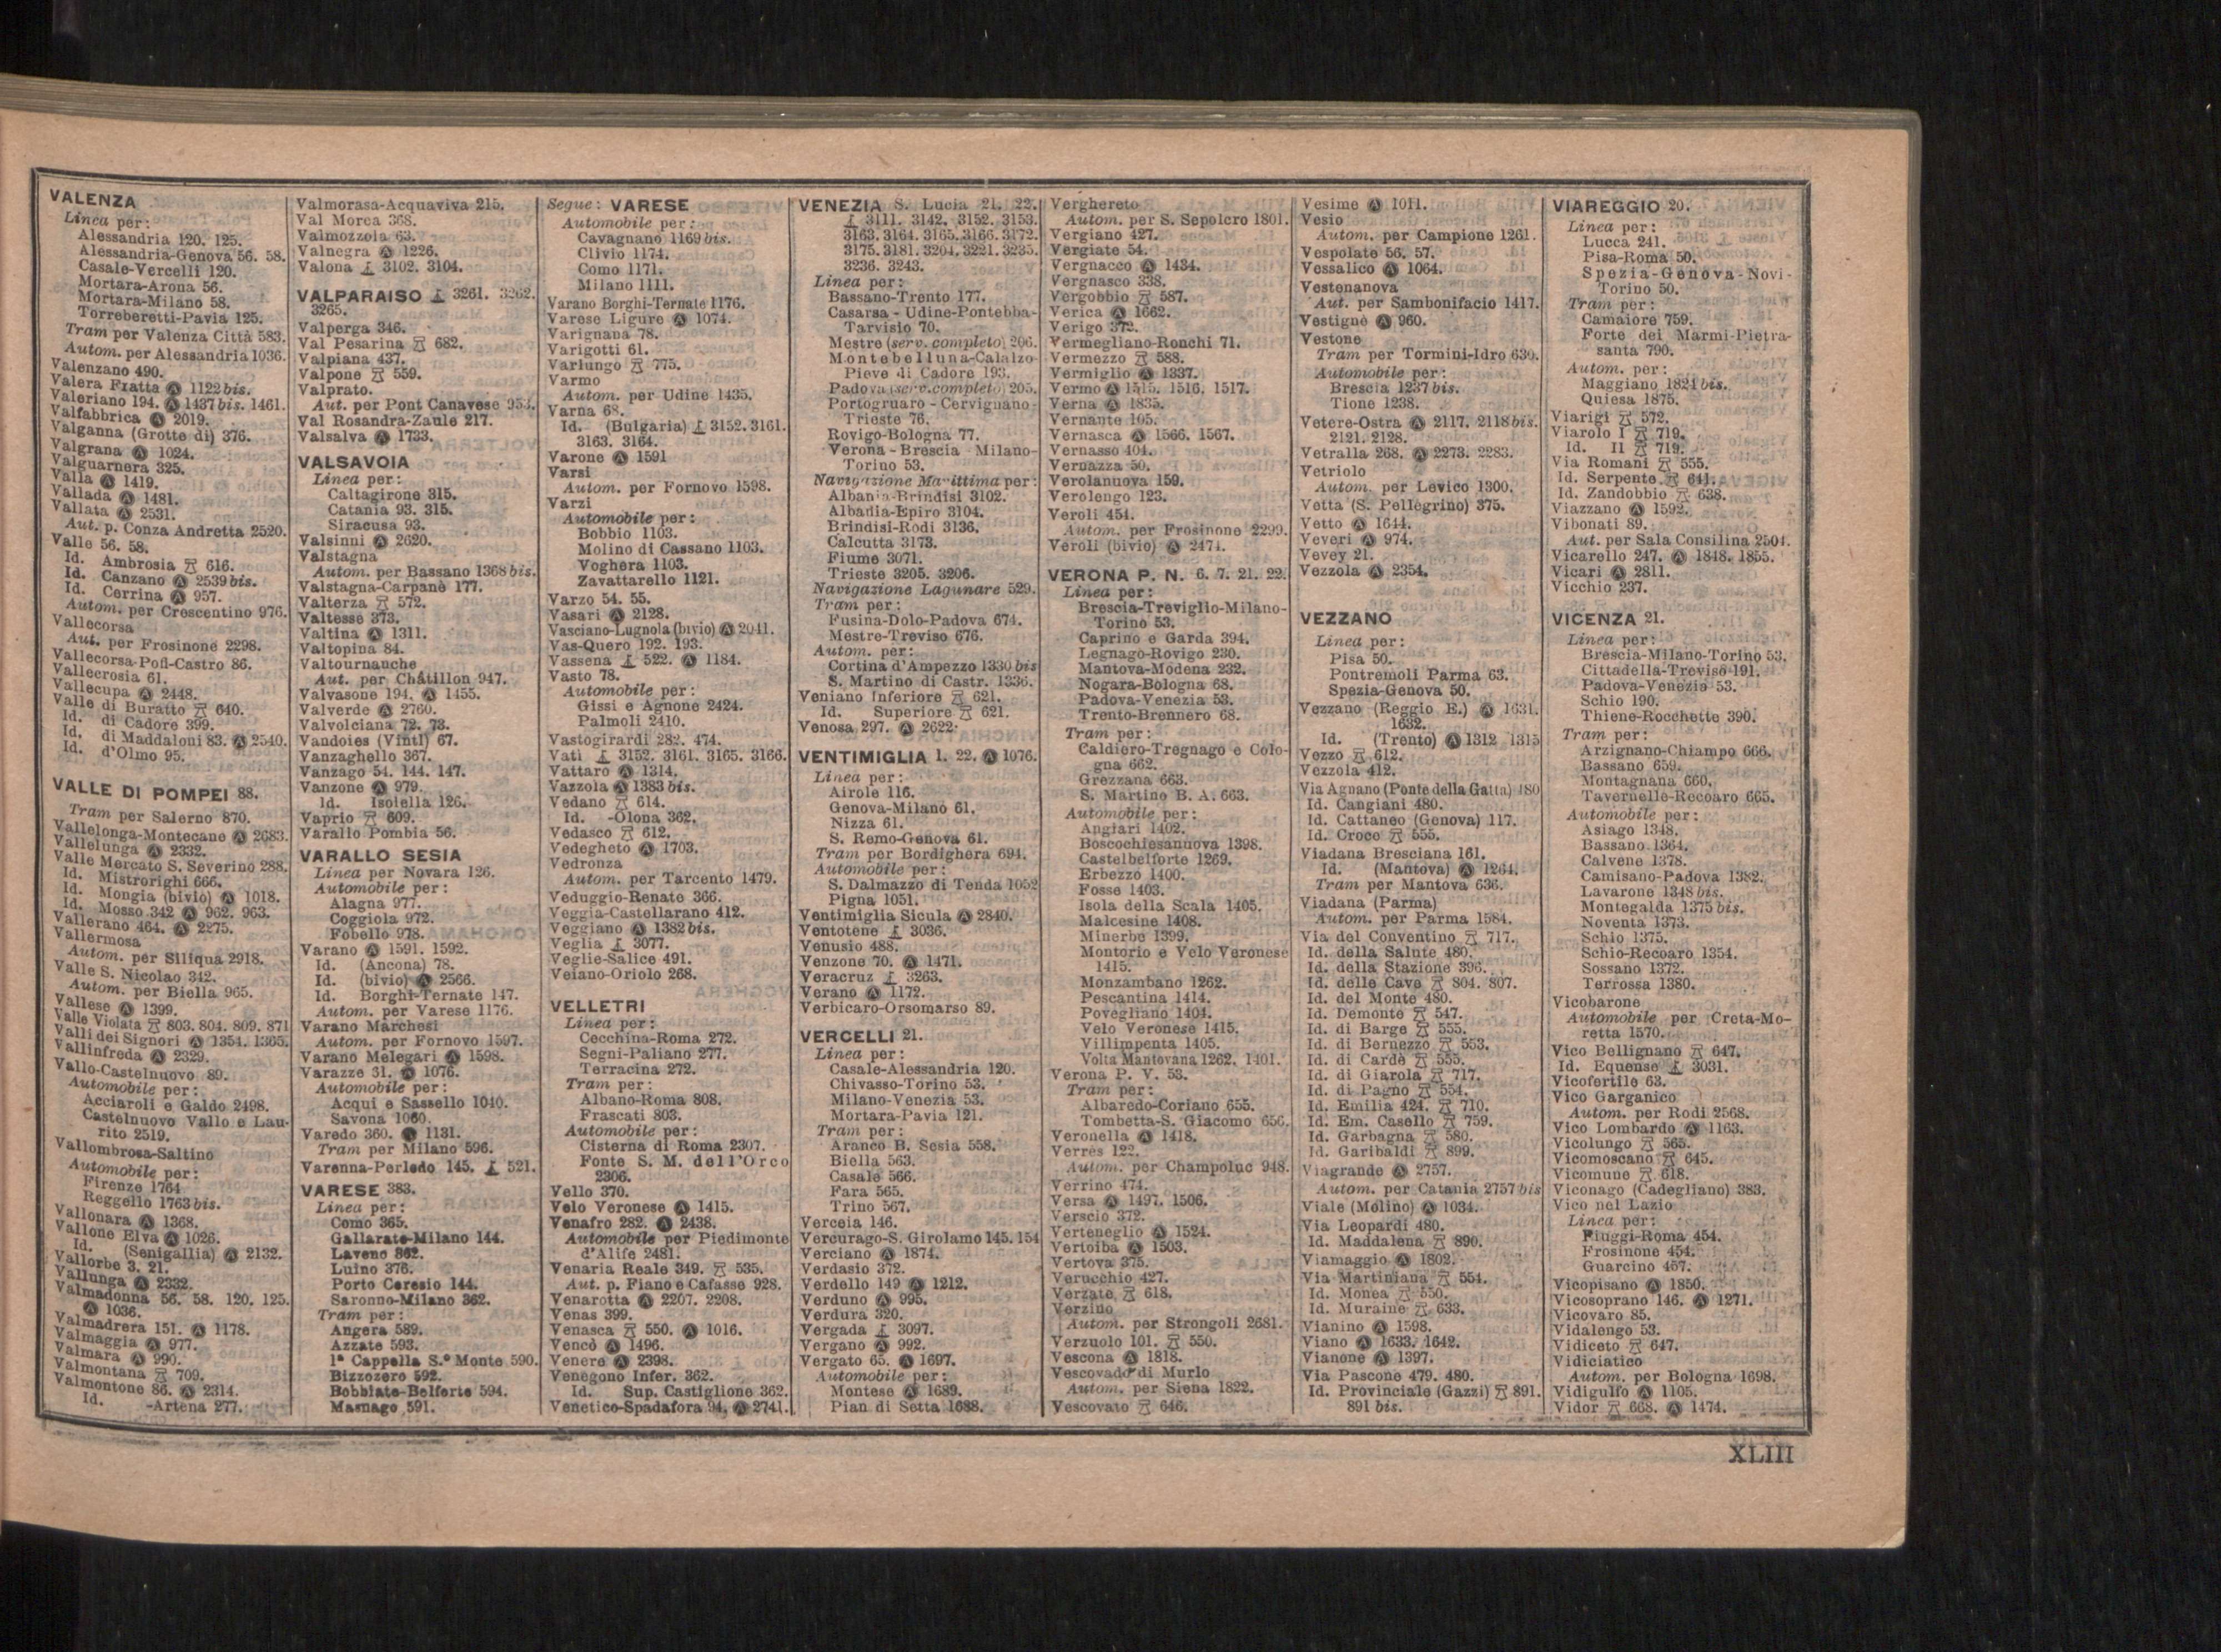 VALENZA
Linea per:
Alessandria 120. 125.
Alessandria-Genova 56. 58.
Casale-Vercelli 120.
Mortara-Arona 56.
Mortara-Milano 58.
Torreberetti-Pavia 125.
Tram per Valenza Città 583.
Autom. per Alessandria 1036.
Valenzano 490.
Valera Fratta Ⓐ 1122 bis.
Valeriano 194. Ⓐ 1437 bis. 1461.
Valfabbrica Ⓐ 2019.
Valganna (Grotte di) 376.
Valgrana Ⓐ 1024.
Valguarnera 325.
Valla Ⓐ 1419.
Vallada Ⓐ 1481.
Vallata Ⓐ 2531.
Aut. p. Conza Andretta 2520.
Valle 56. 58.
Id. Ambrosia 616.
Id. Canzano Ⓐ 2539 bis.
Id. Cerrina Ⓐ 957.
Autom. per Crescentino 976.
Vallecorsa
Aut. per Frosinone 2298.
Vallecorsa-Pofi-Castro 86.
Vallecrosia 61.
Vallecupa Ⓐ 2448.
Valle di Buratto 640.
Id. di Cadore 399.
Id. di Maddaloni 83. Ⓐ 2540.
Id. d'Olmo 95.
VALLE DI POMPEI 88.
Tram per Salerno 870.
Vallelonga-Montecane Ⓐ 2683.
Vallelunga Ⓐ 2332.
Valle Mercato S. Severino 288.
Id. Mistrorighi 666.
Id. Mongia (bivio) Ⓐ 1018.
Id. Mosso 342 Ⓐ 962. 963.
Vallerano 464. Ⓐ 2275.
Vallermosa
Autom. per Siliqua 2918.
Valle S. Nicolao 342.
Autom. per Biella 965.
Vallese Ⓐ 1399.
Valle Violata 803. 804. 809. 871
Valli dei Signori Ⓐ 1354. 1365.
Vallinfreda Ⓐ 2329.
Vallo-Castelnuovo 89.
Automobile per:
Acciaroli e Galdo 2498.
Castelnuovo Vallo e Lau-
rito 2519.
Vallombrosa-Saltino
Automobile per:
Firenze 1764
Reggello 1763 bis.
Vallonara Ⓐ 1368.
Vallone Elva Ⓐ 1026.
Id. (Senigallia) Ⓐ 2132.
Vallorbe 3. 21.
Vallunga Ⓐ 2332.
Valmadonna 56. 58. 120. 125.
Ⓐ 1036.
Valmadrera 151. Ⓐ 1178.
Valmaggia Ⓐ 977.
Valmara Ⓐ 990.
Valmontana 709.
Valmontone 86. Ⓐ 2314.
Id. -Artena 277.
Valmorasa-Acquaviva 215.
Val Morea 368.
Valmozzola 63.
Valnegra Ⓐ 1226.
Valona 3102. 3104.
VALPARAISO 3261. 3262.
3265.
Valperga 346.
Val Pesarina 682.
Valpiana 437.
Valpone 559.
Valprato.
Aut. per Pont Canavese 953.
Val Rosandra-Zaule 217.
Valsalva Ⓐ 1733.
VALSAVOIA
Linea per:
Caltagirone 315.
Catania 93. 315.
Siracusa 93.
Valsinni Ⓐ 2620.
Valstagna
Autom. per Bassano 1368 bis.
Valstagna-Carpanè 177.
Valterza 572.
Valtesse 373.
Valtina Ⓐ 1311.
Valtopina 84.
Valtournanche
Aut. per Châtillon 947.
Valvasone 194. Ⓐ 1455.
Valverde Ⓐ 2760.
Valvolciana 72. 73.
Vandoies (Vintl) 67.
Vanzaghello 367.
Vanzago 54. 144. 147.
Vanzone Ⓐ 979.
Id. Isolella 126.
Vaprio 609.
Varallo Pombia 56.
VARALLO SESIA
Linea per Novara 126.
Automobile per:
Alagna 977.
Coggiola 972.
Fobello 978.
Varano Ⓐ 1591. 1592.
Id. (Ancona) 78.
Id. (bivio) Ⓐ 2566.
Id. Borghi-Ternate 147.
Autom. per Varese 1176.
Varano Marchesi
Autom. per Fornovo 1597.
Varano Melegari Ⓐ 1598.
Varazze 31. Ⓐ 1076.
Automobile per:
Acqui e Sassello 1040.
Savona 1060.
Varedo 360. Ⓐ 1131.
Tram per Milano 596.
Varenna-Perledo 145. 521.
VARESE 383.
Linea per:
Como 365.
Gallarate-Milano 144.
Laveno 362.
Luino 376.
Porto Ceresio 144.
Saronno-Milano 362.
Tram per:
Angera 589.
Azzate 593.
1ª Cappella S.º Monte 590.
Bizzozero 592.
Bobbiate-Belforte 594.
Masnago 591.
Segue: VARESE
Automobile per:
Cavagnano 1169 bis.
Clivio 1174.
Como 1171.
Milano 1111.
Varano Borghi-Ternate 1176.
Varese Ligure Ⓐ 1074.
Varignana 78.
Varigotti 61.
Varlungo 775.
Varmo
Autom. per Udine 1435.
Varna 68.
Id. (Bulgaria) 3152. 3161.
3163. 3164.
Varone Ⓐ 1591
Varsi
Autom. per Fornovo 1598.
Varzi
Automobile per:
Bobbio 1103.
Molino di Cassano 1103.
Voghera 1103.
Zavattarello 1121.
Varzo 54. 55.
Vasari Ⓐ 2128.
Vasciano-Lugnola (bivio) Ⓐ 2041.
Vas-Quero 192. 193.
Vassena 522. Ⓐ 1184.
Vasto 78.
Automobile per:
Gissi e Agnone 2424.
Palmoli 2410.
Vastogirardi 282. 474.
Vati 3152. 3161. 3165. 3166.
Vattaro Ⓐ 1314.
Vazzola Ⓐ 1383 bis.
Vedano 614.
Id. -Olona 362.
Vedasco 612.
Vedegheto Ⓐ 1703.
Vedronza
Autom. per Tarcento 1479.
Veduggio-Renate 366.
Veggia-Castellarano 412.
Veggiano Ⓐ 1382 bis.
Veglia 3077.
Veglie-Salice 491.
Veiano-Oriolo 268.
VELLETRI
Linea per:
Cecchina-Roma 272.
Segni-Paliano 277.
Terracina 272.
Tram per:
Albano-Roma 808.
Frascati 803.
Automobile per:
Cisterna di Roma 2307.
Fonte S. M. dell'Orco
2306.
Vello 370.
Velo Veronese Ⓐ 1415.
Venafro 282. Ⓐ 2438.
Automobile per Piedimonte
d'Alife 2481.
Venaria Reale 349. 535.
Aut. p. Fiano e Cafasse 928.
Venarotta Ⓐ 2207. 2208.
Venas 399.
Venasca 550. Ⓐ 1016.
Vencò Ⓐ 1496.
Venere Ⓐ 2398.
Venegono Infer. 362.
Id. Sup. Castiglione 362.
Venetico-Spadafora 94. Ⓐ 2741.
VENEZIA S. Lucia 21. 22.
3111. 3142. 3152. 3153.
3163. 3164. 3165. 3166. 3172.
3175. 3181. 3204. 3221. 3235.
3236. 3243.
Linea per:
Bassano-Trento 177.
Casarsa - Udine-Pontebba-
Tarvisio 70.
Mestre (serv. completo) 206.
Montebelluna-Calalzo-
Pieve di Cadore 193.
Padova (serv. completo) 205.
Portogruaro - Cervignano-
Trieste 76.
Rovigo-Bologna 77.
Verona - Brescia - Milano-
Torino 53.
Navigazione Marittima per:
Albania-Brindisi 3102.
Albania-Epiro 3104.
Brindisi-Rodi 3136.
Calcutta 3173.
Fiume 3071.
Trieste 3205. 3206.
Navigazione Lagunare 529.
Tram per:
Fusina-Dolo-Padova 674.
Mestre-Treviso 676.
Autom. per:
Cortina d'Ampezzo 1330 bis
S. Martino di Castr. 1336.
Veniano Inferiore 621.
Id. Superiore 621.
Venosa 297. Ⓐ 2622.
VENTIMIGLIA 1. 22. Ⓐ 1076.
Linea per:
Airole 116.
Genova-Milano 61.
Nizza 61.
S. Remo-Genova 61.
Tram per Bordighera 694.
Automobile per:
S. Dalmazzo di Tenda 1052
Pigna 1051.
Ventimiglia Sicula Ⓐ 2840.
Ventotene 3036.
Venusio 488.
Venzone 70. Ⓐ 1471.
Veracruz 3263.
Verano Ⓐ 1172.
Verbicaro-Orsomarso 89.
VERCELLI 21.
Linea per:
Casale-Alessandria 120.
Chivasso-Torino 53.
Milano-Venezia 53.
Mortara-Pavia 121.
Tram per:
Aranco B. Sesia 558.
Biella 563.
Casale 566.
Fara 565.
Trino 567.
Verceia 146.
Vercurago-S. Girolamo 145. 154
Verciano Ⓐ 1874.
Verdasio 372.
Verdello 149 Ⓐ 1212.
Verduno Ⓐ 995.
Verdura 320.
Vergada 3097.
Vergano Ⓐ 992.
Vergato 65. Ⓐ 1697.
Automobile per:
Montese Ⓐ 1689.
Pian di Setta 1688.
Verghereto
Autom. per S. Sepolcro 1801.
Vergiano 427.
Vergiate 54.
Vergnacco Ⓐ 1434.
Vergnasco 338.
Vergobbio 587.
Verica Ⓐ 1662.
Verigo 372.
Vermegliano-Ronchi 71.
Vermezzo 588.
Vermiglio Ⓐ 1337.
Vermo Ⓐ 1515. 1516. 1517.
Verna Ⓐ 1835.
Vernante 105.
Vernasca Ⓐ 1566. 1567.
Vernasso 404.
Vernazza 50.
Verolanuova 159.
Verolengo 123.
Veroli 454.
Autom. per Frosinone 2299.
Veroli (bivio) Ⓐ 2474.
VERONA P. N. 6. 7. 21. 22.
Linea per:
Brescia-Treviglio-Milano-
Torino 53.
Caprino e Garda 394.
Legnago-Rovigo 230.
Mantova-Modena 232.
Nogara-Bologna 68.
Padova-Venezia 53.
Trento-Brennero 68.
Tram per:
Caldiero-Tregnago e Colo-
gna 662.
Grezzana 663.
S. Martino B. A. 663.
Automobile per:
Angiari 1402.
Boscochiesanuova 1398.
Castelbelforte 1269.
Erbezzo 1400.
Fosse 1403.
Isola della Scala 1405.
Malcesine 1408.
Minerbe 1399.
Montorio e Velo Veronese
1415.
Monzambano 1262.
Pescantina 1414.
Povegliano 1404.
Velo Veronese 1415.
Villimpenta 1405.
Volta Mantovana 1262. 1401.
Verona P. V. 53.
Tram per:
Albaredo-Coriano 655.
Tombetta-S. Giacomo 656.
Veronella Ⓐ 1418.
Verrès 122.
Autom. per Champoluc 948.
Verrino 474.
Versa Ⓐ 1497. 1506.
Verscio 372.
Verteneglio Ⓐ 1524.
Vertoiba Ⓐ 1503.
Vertova 375.
Verucchio 427.
Verzate 618.
Verzino
Autom. per Strongoli 2681.
Verzuolo 101. 550.
Vescona Ⓐ 1818.
Vescovado di Murlo
Autom. per Siena 1822.
Vescovato 646.
Vesime Ⓐ 1011.
Vesio
Autom. per Campione 1261.
Vespolate 56. 57.
Vessalico Ⓐ 1064.
Vestenanova
Aut. per Sambonifacio 1417.
Vestignè Ⓐ 960.
Vestone
Tram per Tormini-Idro 630.
Automobile per:
Brescia 1237 bis.
Tione 1238.
Vetere-Ostra Ⓐ 2117. 2118 bis.
2121. 2128.
Vetralla 268. Ⓐ 2273. 2283.
Vetriolo
Autom. per Levico 1300.
Vetta (S. Pellegrino) 375.
Vetto Ⓐ 1644.
Veveri Ⓐ 974.
Vevey 21.
Vezzola Ⓐ 2354.
VEZZANO
Linea per:
Pisa 50.
Pontremoli Parma 63.
Spezia-Genova 50.
Vezzano (Reggio E.) Ⓐ 1631.
1632.
Id. (Trento) Ⓐ 1312 1315
Vezzo 612.
Vezzola 412.
Via Agnano (Ponte della Gatta) 480
Id. Cangiani 480.
Id. Cattaneo (Genova) 117.
Id. Croce 555.
Viadana Bresciana 161.
Id. (Mantova) Ⓐ 1264.
Tram per Mantova 636.
Viadana (Parma)
Autom. per Parma 1584.
Via del Conventino 717.
Id. della Salute 480.
Id. della Stazione 396.
Id. delle Cave 804. 807.
Id. del Monte 480.
Id. Demonte 547.
Id. di Barge 555.
Id. di Bernezzo 553.
Id. di Cardè 555.
Id. di Giarola 717.
Id. di Pagno 554.
Id. Emilia 424. 710.
Id. Em. Casello 759.
Id. Garbagna 580.
Id. Garibaldi 899.
Viagrande Ⓐ 2757.
Autom. per Catania 2757 bis
Viale (Molino) Ⓐ 1034.
Via Leopardi 480.
Id. Maddalena 890.
Viamaggio Ⓐ 1802.
Via Martiniana 554.
Id. Monea 550.
Id. Muraine 633.
Vianino Ⓐ 1598.
Viano Ⓐ 1633. 1642.
Vianone Ⓐ 1397.
Via Pascone 479. 480.
Id. Provinciale (Gazzi) 891.
891 bis.
VIAREGGIO 20.
Linea per:
Lucca 241.
Pisa-Roma 50.
Spezia-Genova-Novi-
Torino 50.
Tram per:
Camaiore 759.
Forte dei Marmi-Pietra-
santa 790.
Autom. per:
Maggiano 1821 bis.
Quiesa 1875.
Viarigi 572.
Viarolo I 719.
Id. II 719.
Via Romani 555.
Id. Serpente 641.
Id. Zandobbio 638.
Viazzano Ⓐ 1592.
Vibonati 89.
Aut. per Sala Consilina 2501.
Vicarello 247. Ⓐ 1848. 1855.
Vicari Ⓐ 2811.
Vicchio 237.
VICENZA 21.
Linea per:
Brescia-Milano-Torino 53.
Cittadella-Treviso 191.
Padova-Venezia 53.
Schio 190.
Thiene-Rocchette 390.
Tram per:
Arzignano-Chiampo 666.
Bassano 659.
Montagnana 660.
Tavernelle-Recoaro 665.
Automobile per:
Asiago 1348.
Bassano 1364.
Calvene 1378.
Camisano-Padova 1382.
Lavarone 1348 bis.
Montegalda 1375 bis.
Noventa 1373.
Schio 1375.
Schio-Recoaro 1354.
Sossano 1372.
Terrossa 1380.
Vicobarone
Automobile per Creta-Mo-
retta 1570.
Vico Bellignano 647.
Id. Equense 3031.
Vicofertile 63.
Vico Garganico
Autom. per Rodi 2568.
Vico Lombardo Ⓐ 1163.
Vicolungo 565.
Vicomoscano 645.
Vicomune 618.
Viconago (Cadegliano) 383.
Vico nel Lazio
Linea per:
Fiuggi-Roma 454.
Frosinone 454.
Guarcino 457.
Vicopisano Ⓐ 1850.
Vicosoprano 146. Ⓐ 1271.
Vicovaro 85.
Vidalengo 53.
Vidiceto 647.
Vidiciatico
Autom. per Bologna 1698.
Vidigulfo Ⓐ 1105.
Vidor 668. Ⓐ 1474.
XLIII